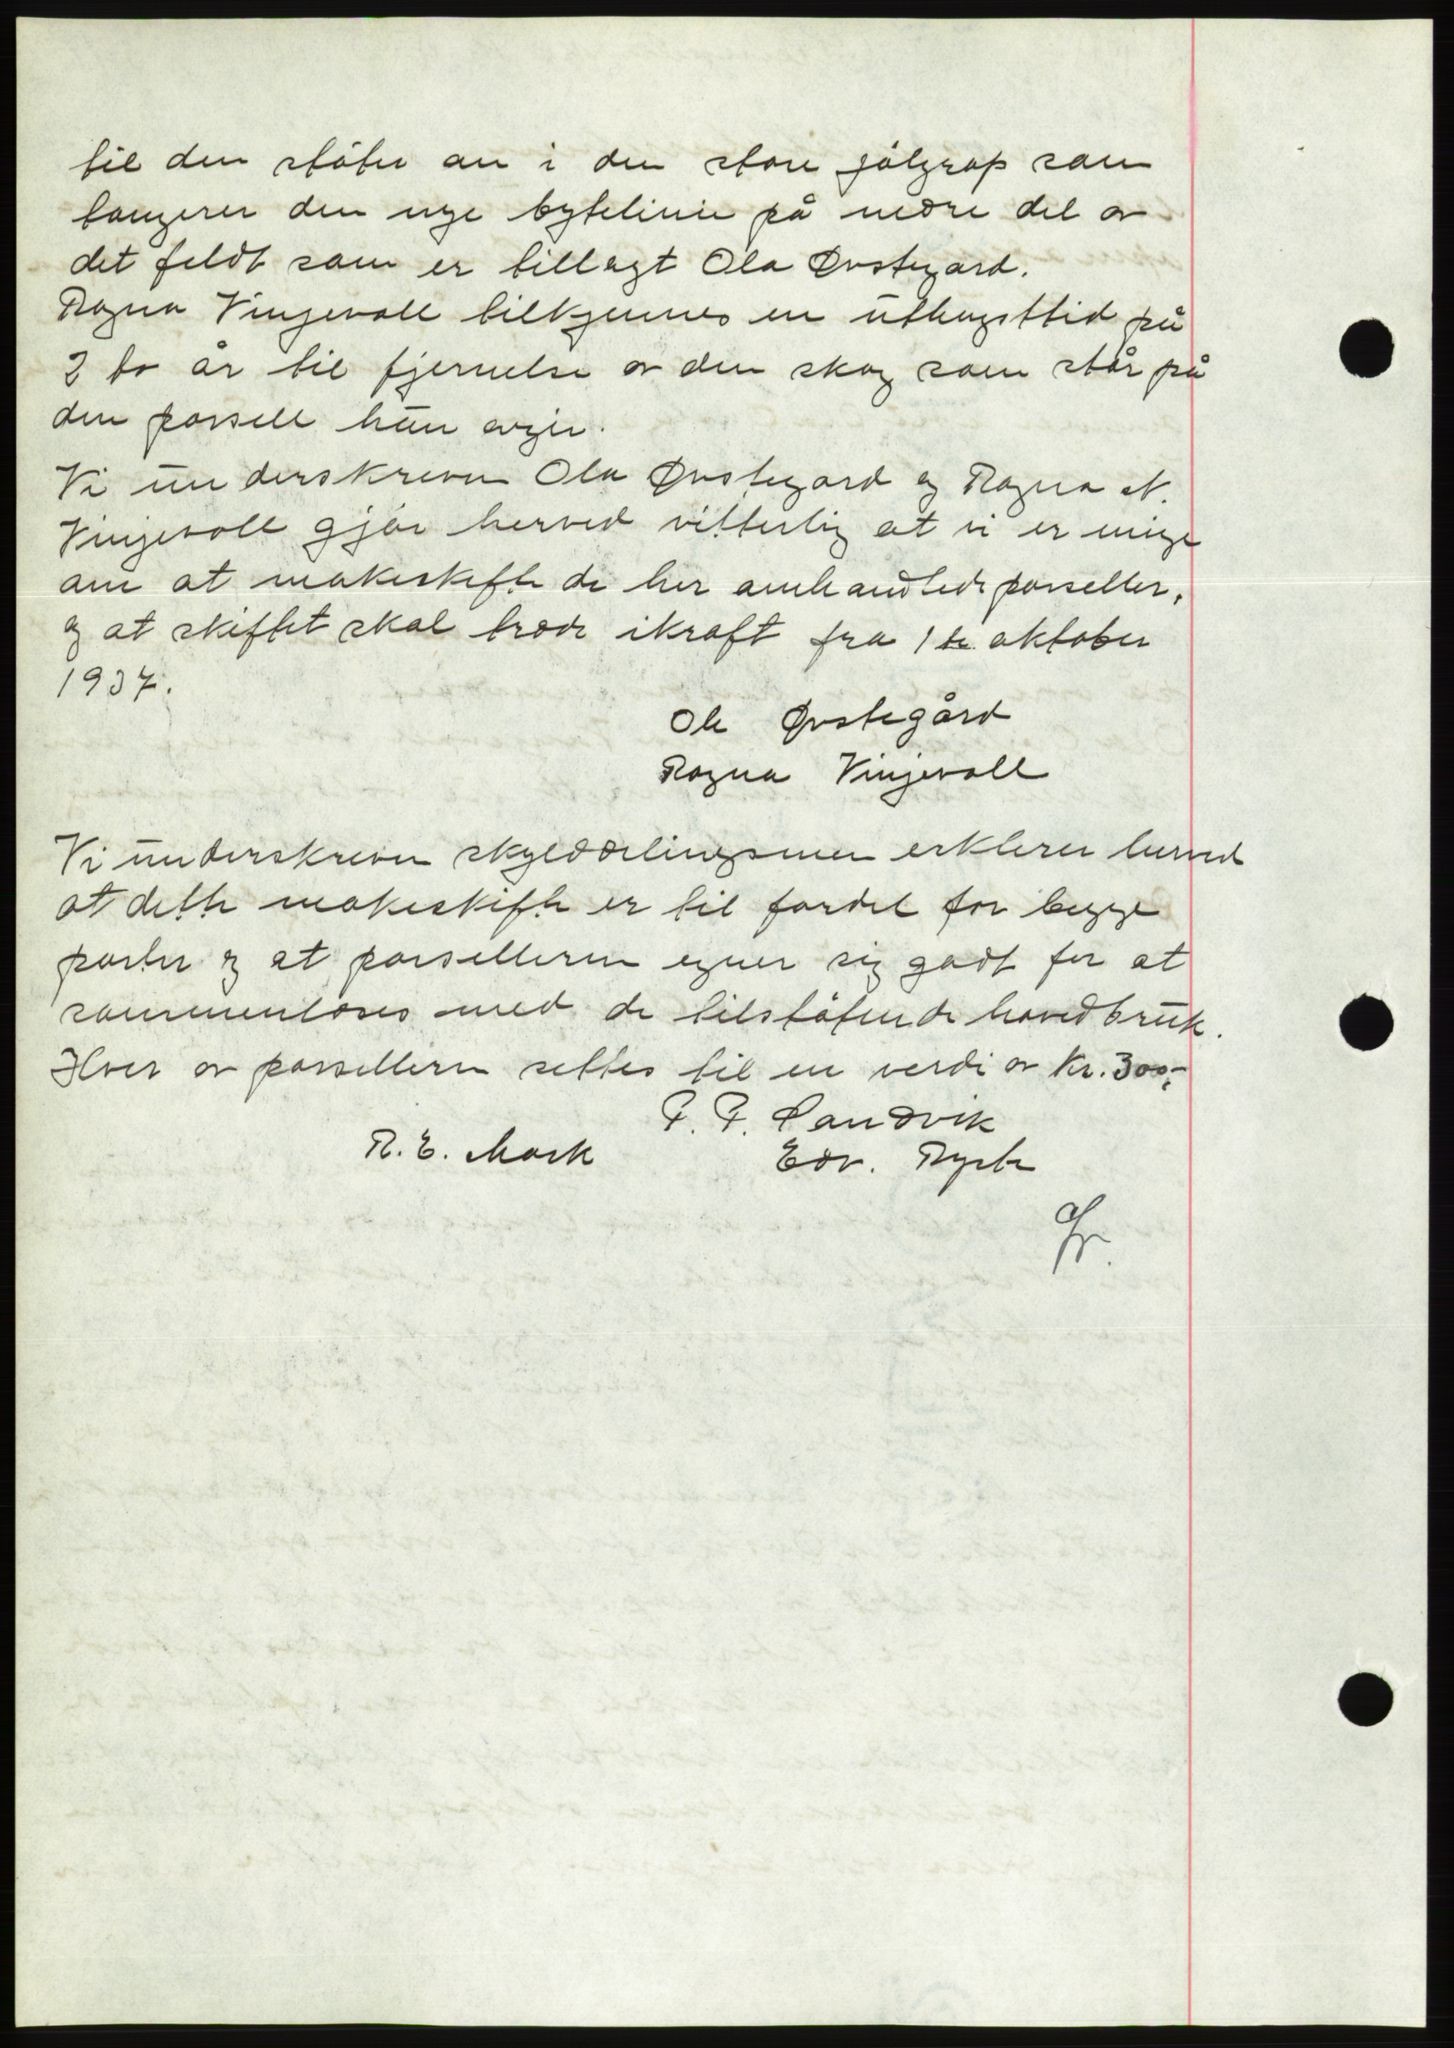 til den støter an i den store jølgrop som
tangerer den nye bytelinie på nedre del av
det feldt som er tillagt Ola Øvstegard.
Ragna Vinjevoll tilkjennes en uthugsttid på
2 to år til fjernelse av den skog som står på
den parsell hun avgir.
Vi underskrevne Ola Øvstegard og Ragna N.
Vinjevoll gjør herved vitterlig at vi er enige
om at makeskifte de her omhandlede parseller,
og at skiftet skal træde ikraft fra 1ste oktober
1937.
Ole Øvstegård
Ragna Vinjevoll
Vi underskrevne skylddelingsmen erklerer herved
at dette makeskifte er til fordel for begge
parter og at parsellerne egner sig godt for at
sammenføies med de tilstøtende hovedbruk.
Hver av parsellerne settes til en verdi av kr. 300,-
P. P. Sandvik
R. E. Mork
Edv. Ryste